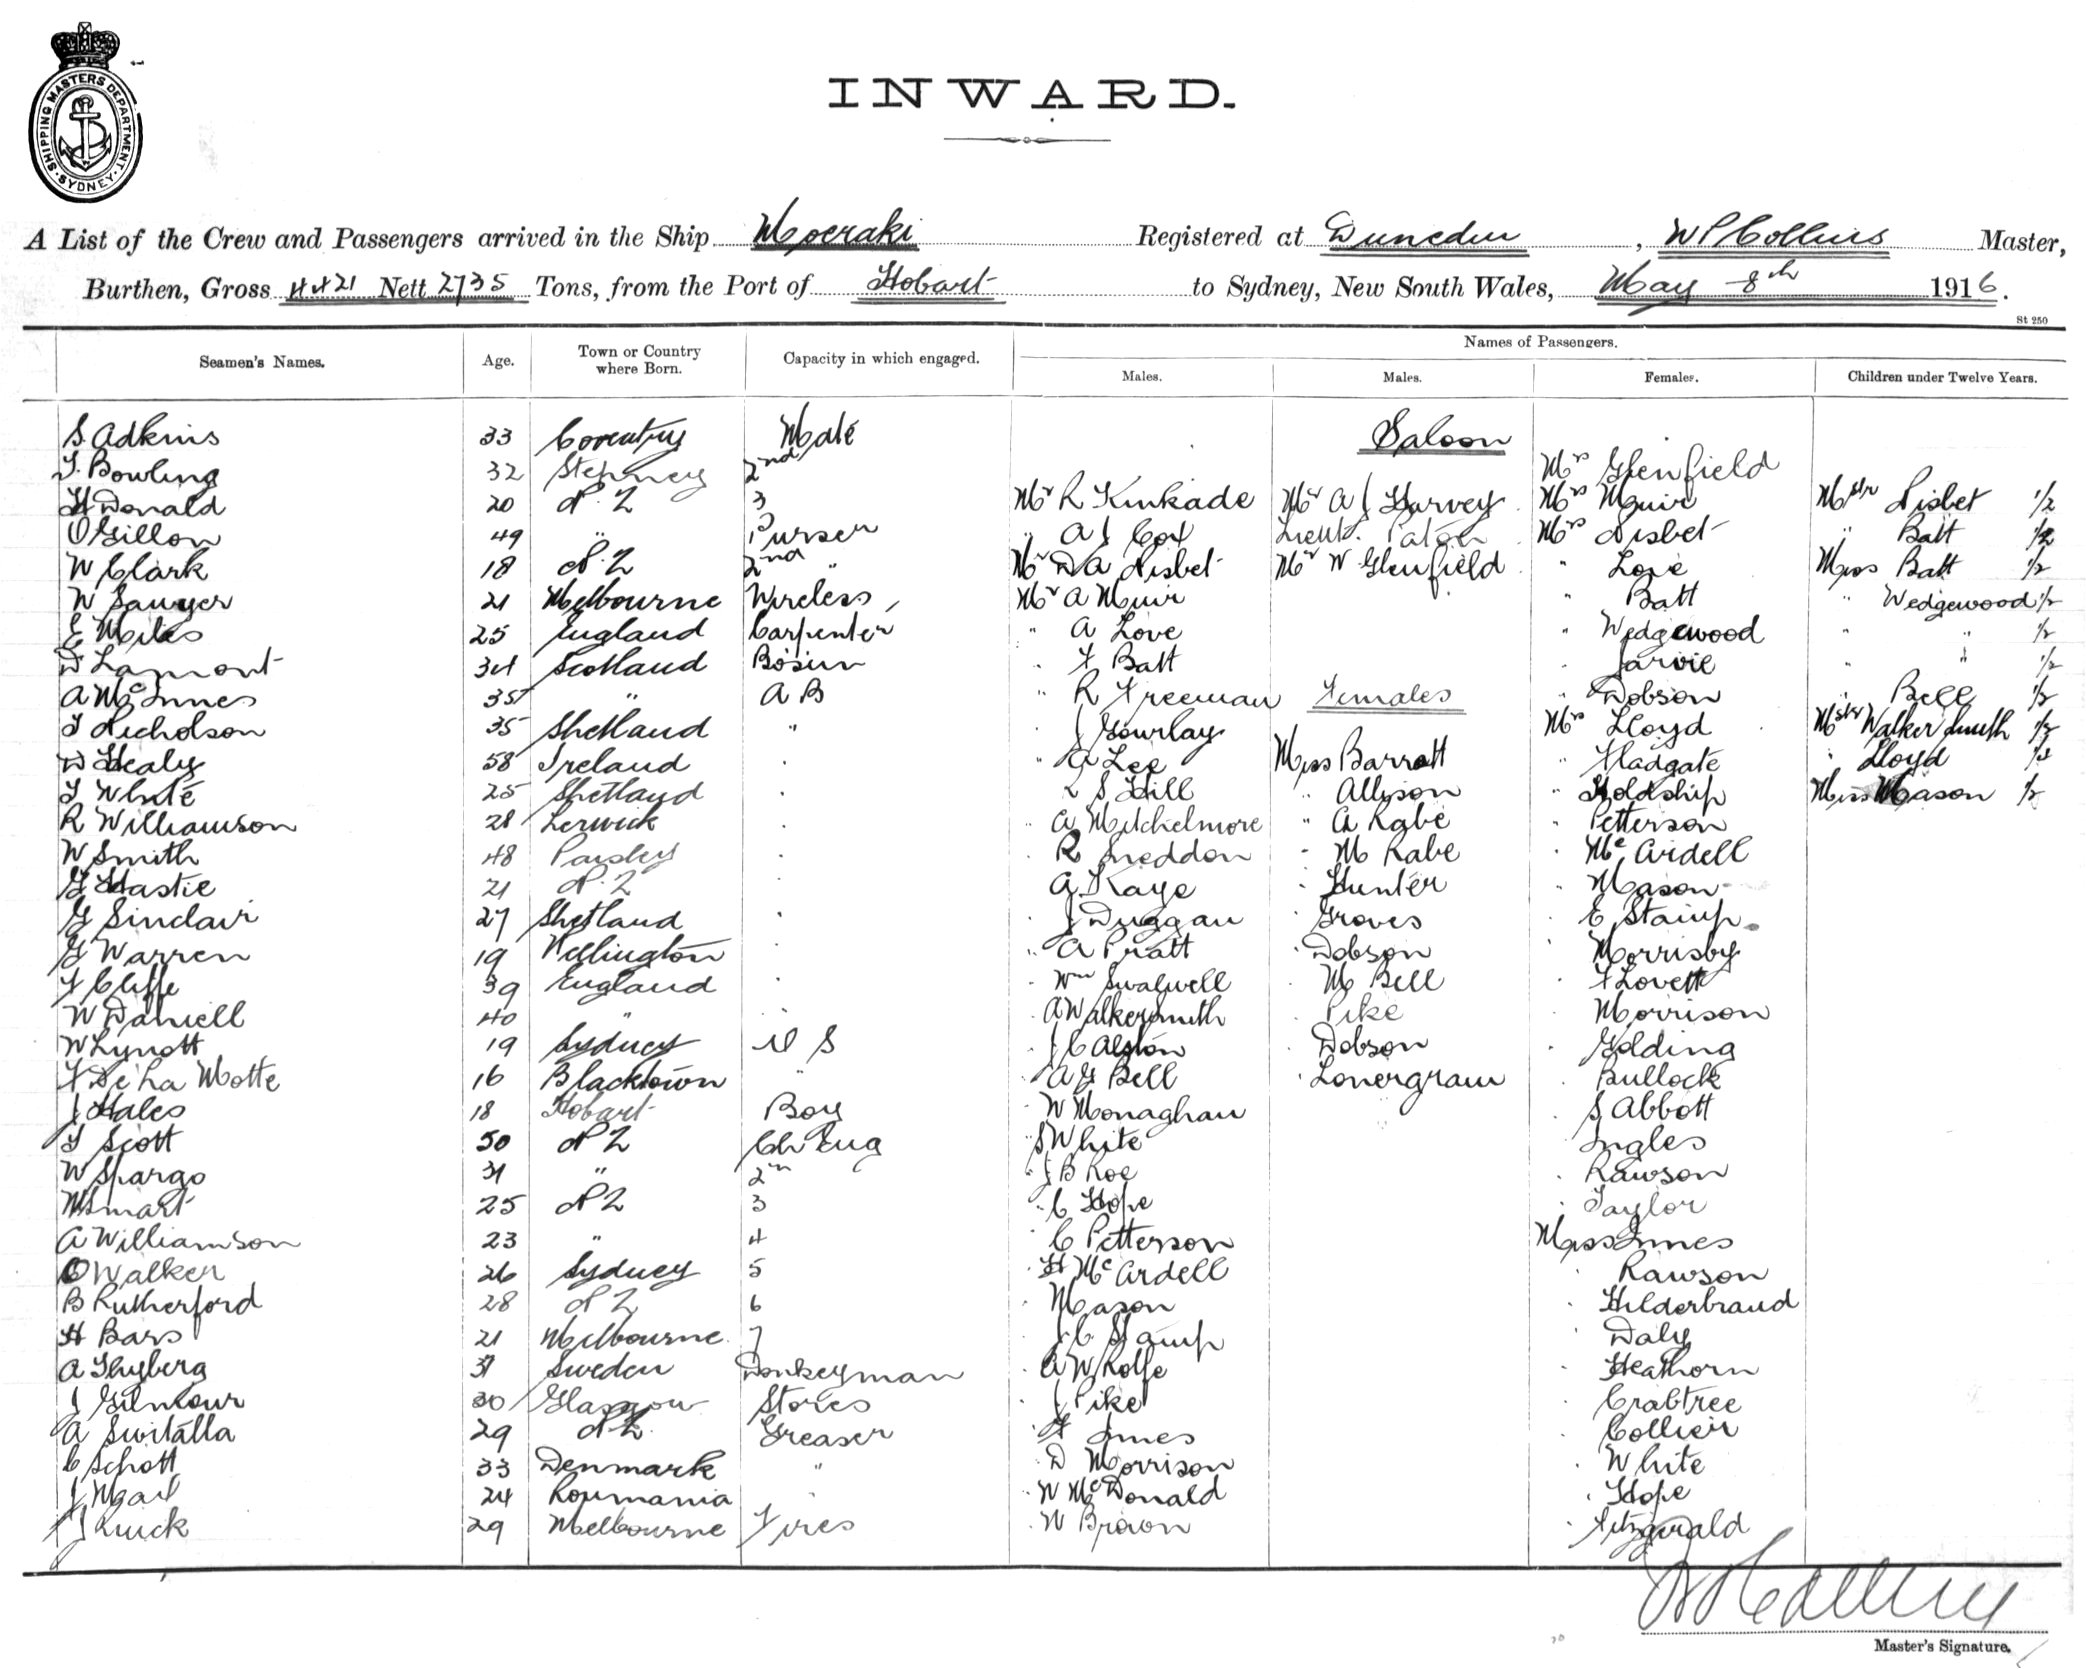 SHIPPING MASTERS DEPARTMENT. SYDNEY
INWARD.
A List of the Crew and Passengers arrived in the Ship Moeraki Registered at Dunedin, W P Collins Master,
Burthen, Gross 4421 Nett 2735 Tons, from the Port of Hobart to Sydney, New South Wales, May 8th 1916.
St 250
Seamen's Names. Age. Town or Country where Born. Capacity in which engaged. Names of Passengers.
Males. Males. Females. Children under Twelve Years.
S Adkins 33 Coventry Mate Saloon
T. Bowling 32 Stepney 2nd Mrs Glenfield
H Donald 20 N. Z 3 Mr R Kinkade Mr A J Harvey Mrs Muir Mstr Nisbet 1/2
O Gillon 49 " Purser " A J Cox Lieut. Paton Mrs Nisbet " Batt 1/2
W Clark 18 N. Z 2nd " Mr D A Nisbet Mr W Glenfield " Love Miss Batt 1/2
W Sawyer 21 Melbourne Wireless, Mr A Muir " Batt " Wedgewood 1/2
E Miles 25 England Carpenter " A Love " Wedgewood " " 1/2
D Lamont 34 Scotland Bosun " F Batt " Jarvie " " 1/2
A McInnes 35 " A B " R Freeman Females " Dobson " Bell 1/2
T Nicholson 35 Shetland " J Gourlay Mrs Lloyd Mstr Walker Smith 1/2
D Healy 58 Ireland " " A Lee Miss Barratt " Fladgate " Lloyd 1/2
T White 25 Shetland " L S Hill " Allison " Holdship Miss Mason 1/2
R Williamson 28 Lerwick " " A Mitchelmore " A Rabe " Petterson
W Smith 48 Paisley " " R Sneddon " M Rabe " McArdell
G Hastie 21 N. Z " A. Kaye " Hunter " Mason
G Sinclair 27 Shetland " " J Duggan " Groves " E Stamp
G Warren 19 Wellington " " A Pratt " Dobson " Morrisby
F Cliffe 39 England " " Wm Swalwell " M Bell " F Lovett
W Daniell 40 " " " A Walkersmith " Pike " Morrison
W Lynott 19 Sydney O S " J C Alston " Dobson " Golding
F De La Motte 16 Blacktown " " A G Bell " Lonergram " Bullock
J Hales 18 Hobart Boy " W Monaghan " S Abbott
T Scott 50 N Z Ch Eng " S White " Ingles
W Spargo 31 " 2n " J B Roe " Rawson
W Smart 25 N Z 3 " C Hope " Taylor
A Williamson 23 " 4 " C Petterson Miss Innes
O Walker 26 Sydney 5 " H McArdell " Rawson
B Rutherford 28 N Z 6 " Mason " Hilderbrand
H Bars 21 Melbourne 7 " J C Stamp " Daly
A Thyberg 31 Sweden Donkeyman " A W Rolfe " Heathorn
J Gilmour 30 Glasgow Stores " J Pike " Crabtree
A Switalla 29 N Z Greaser " F Innes " Collier
C Schott 33 Denmark " " D Morrison " White
J 24 Roumania " " W McDonald " Hope
J Quick 29 Melbourne Fires " W Brown " Fitzgerald
W P Collins
Master's Signature.